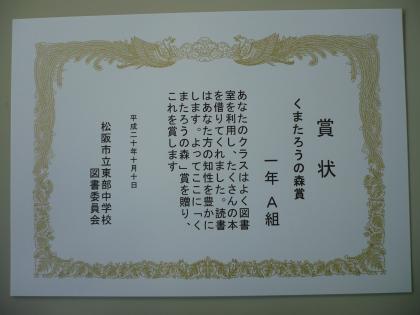 賞状
くまたろうの森賞
一年 A組
あなたのクラスはよく図書
室を利用し、たくさんの本
を借りてくれました。読書
はあなた方の知性を豊かに
します。よってここに「く
またろうの森」賞を贈り、
これを賞します
平成二十年十月十日
松阪市立東部中学校
図書委員会